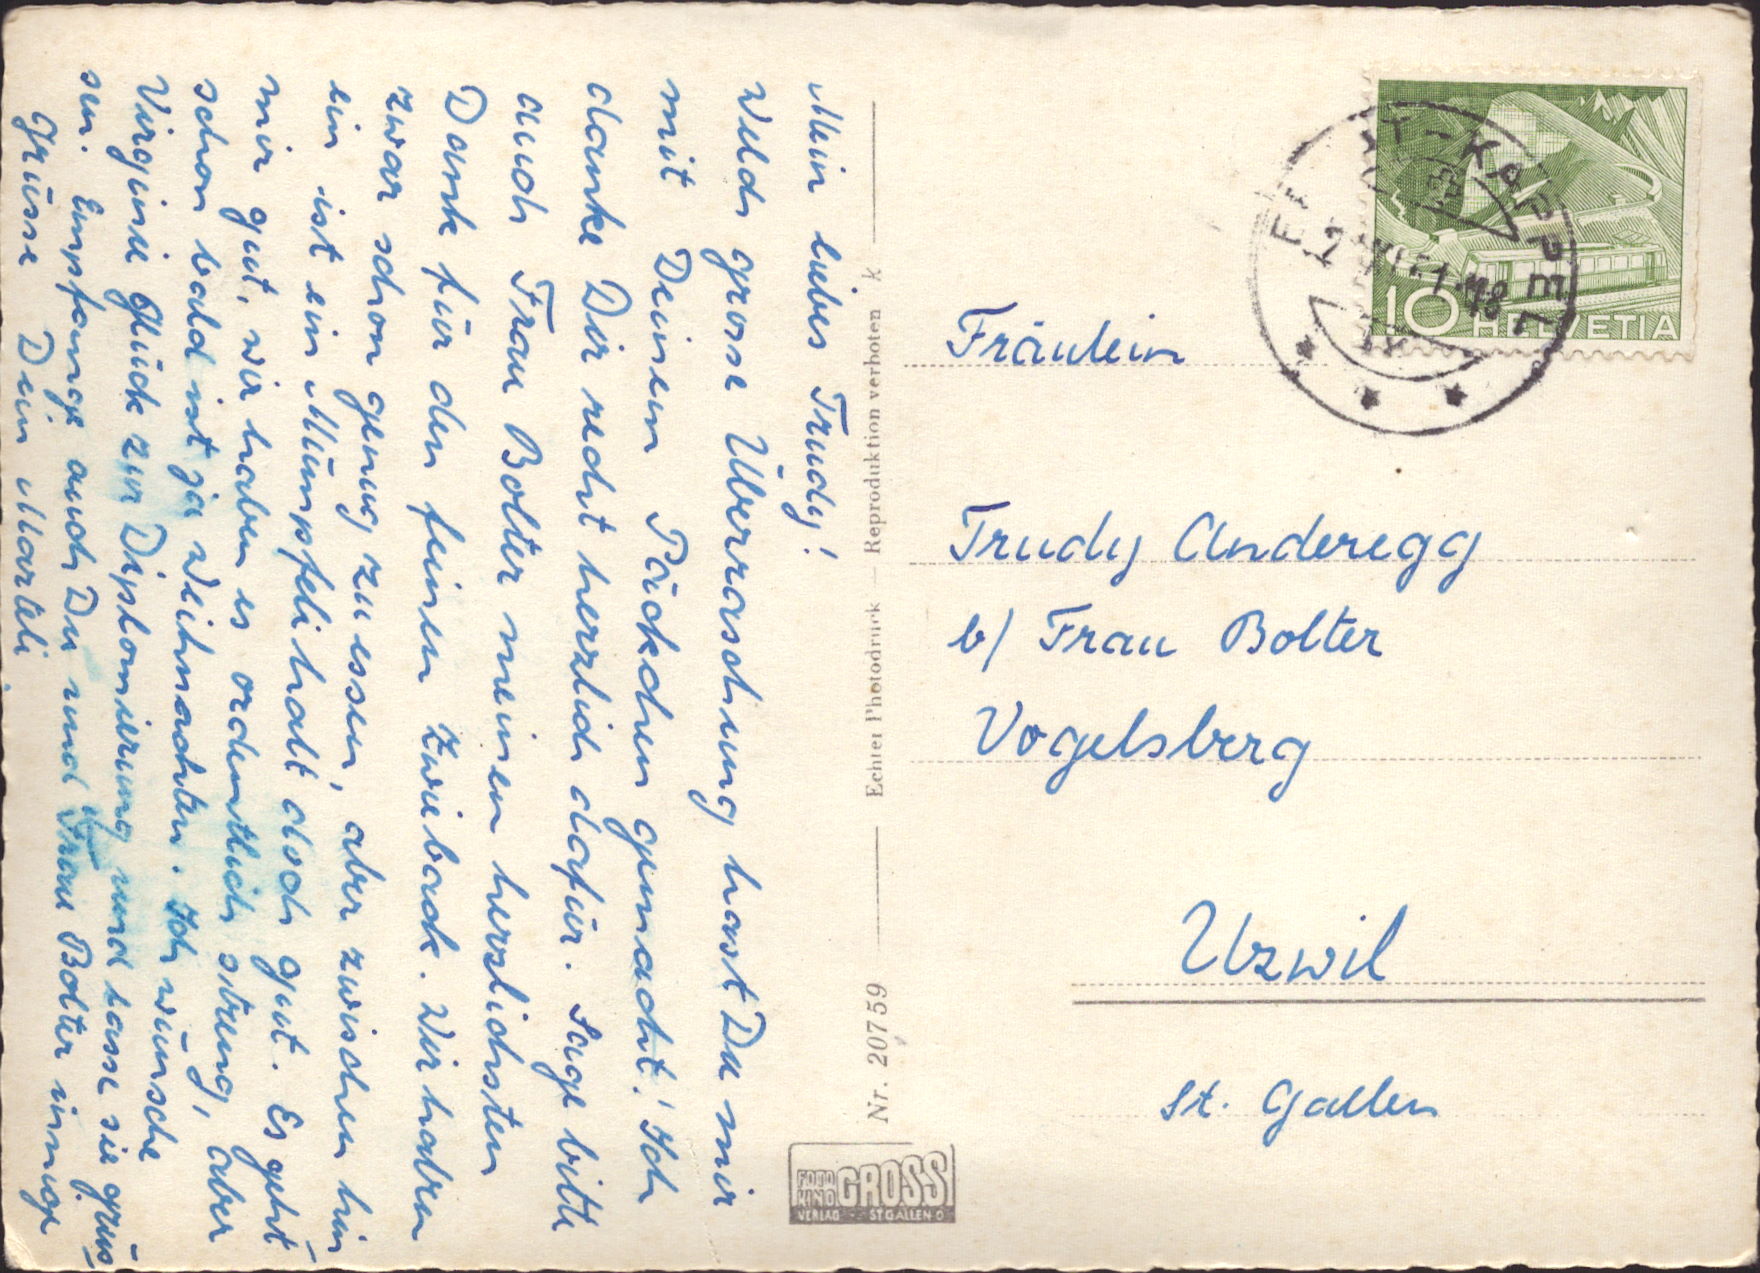 Mein liebes Trudy!
Welch grosse Überraschung hast Du mir
mit Deinem Päckchen gemacht! Ich
danke Dir recht herzlich dafür. Sage bitte
auch Frau Bolter meinen herzlichsten
Dank für den feinen Zwieback. Wir haben
zwar schon genug zu essen, aber zwischen hin-
ein ist ein Mümpfeli halt doch gut. Es geht
mir gut, wir haben es ordentlich streng, aber
schon bald ist ja Weihnachten. Ich wünsche
Virginie Glück zur Diplomierung und lasse sie grüs-
sen. Empfange auch Du und Frau Bolter innige
Grüsse Dein Marteli
Echter Photodruck — Reproduktion verboten k
Nr. 20759
FOTO
KINO
GROSS
VERLAG ST GALLEN O
10 HELVETIA
KAPPEL
Fräulein
Trudy Anderegg
b/ Frau Bolter
Vogelsberg
Uzwil
St. Gallen